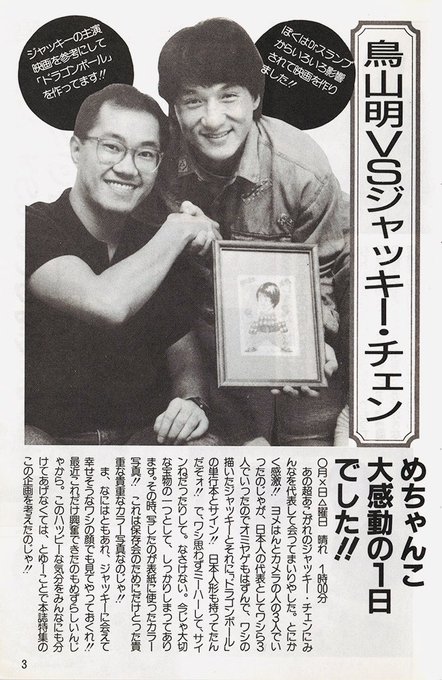 鳥山明VSジャッキー・チェン
ぼくはDr.スランプ
からいろいろ影響
されて映画を作り
ました!!
ジャッキーの主演
映画を参考にして
「ドラゴンボール」
を作ってます!!
めちゃんこ
大感動の1日
でした!!
○月×日△曜日 晴れ 1時00分
あの超あこがれのジャッキー・チェンにみ
んなを代表して会ってまいりやした。とにか
く感激!! ヨメはんとカメラの人の3人でい
ったのじゃが、日本人の代表としてワシら3
人でいったのでオミヤゲもはずんで、ワシの
描いたジャッキーとそれに「ドラゴンボール」
の単行本とサイン!! 日本人形も持ってたん
だぞォ!! で、ワシ思わずミーハーして、サイ
ンねだったりして。なさけない。今じゃ大切
な宝物の一つとして、しっかりしまってあり
ます。その時、写したのが表紙に使ったカラー
写真!! これは保存会のためにだけとった貴
重な貴重なカラー写真なのじゃ!!
ま、なにはともあれ、ジャッキーに会えて
幸せそうなワシの顔でも見てやっておくれ!!
最近これだけ興奮できたのもめずらしいんじ
ゃから。このハッピーな気分をみんなにも分
けてあげなくては、とゆーことで本誌特集の
この企画を考えたのじゃ!!
3